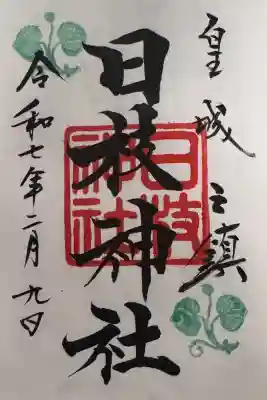 皇城之鎮
日枝神社
令和七年二月九日
日枝神社